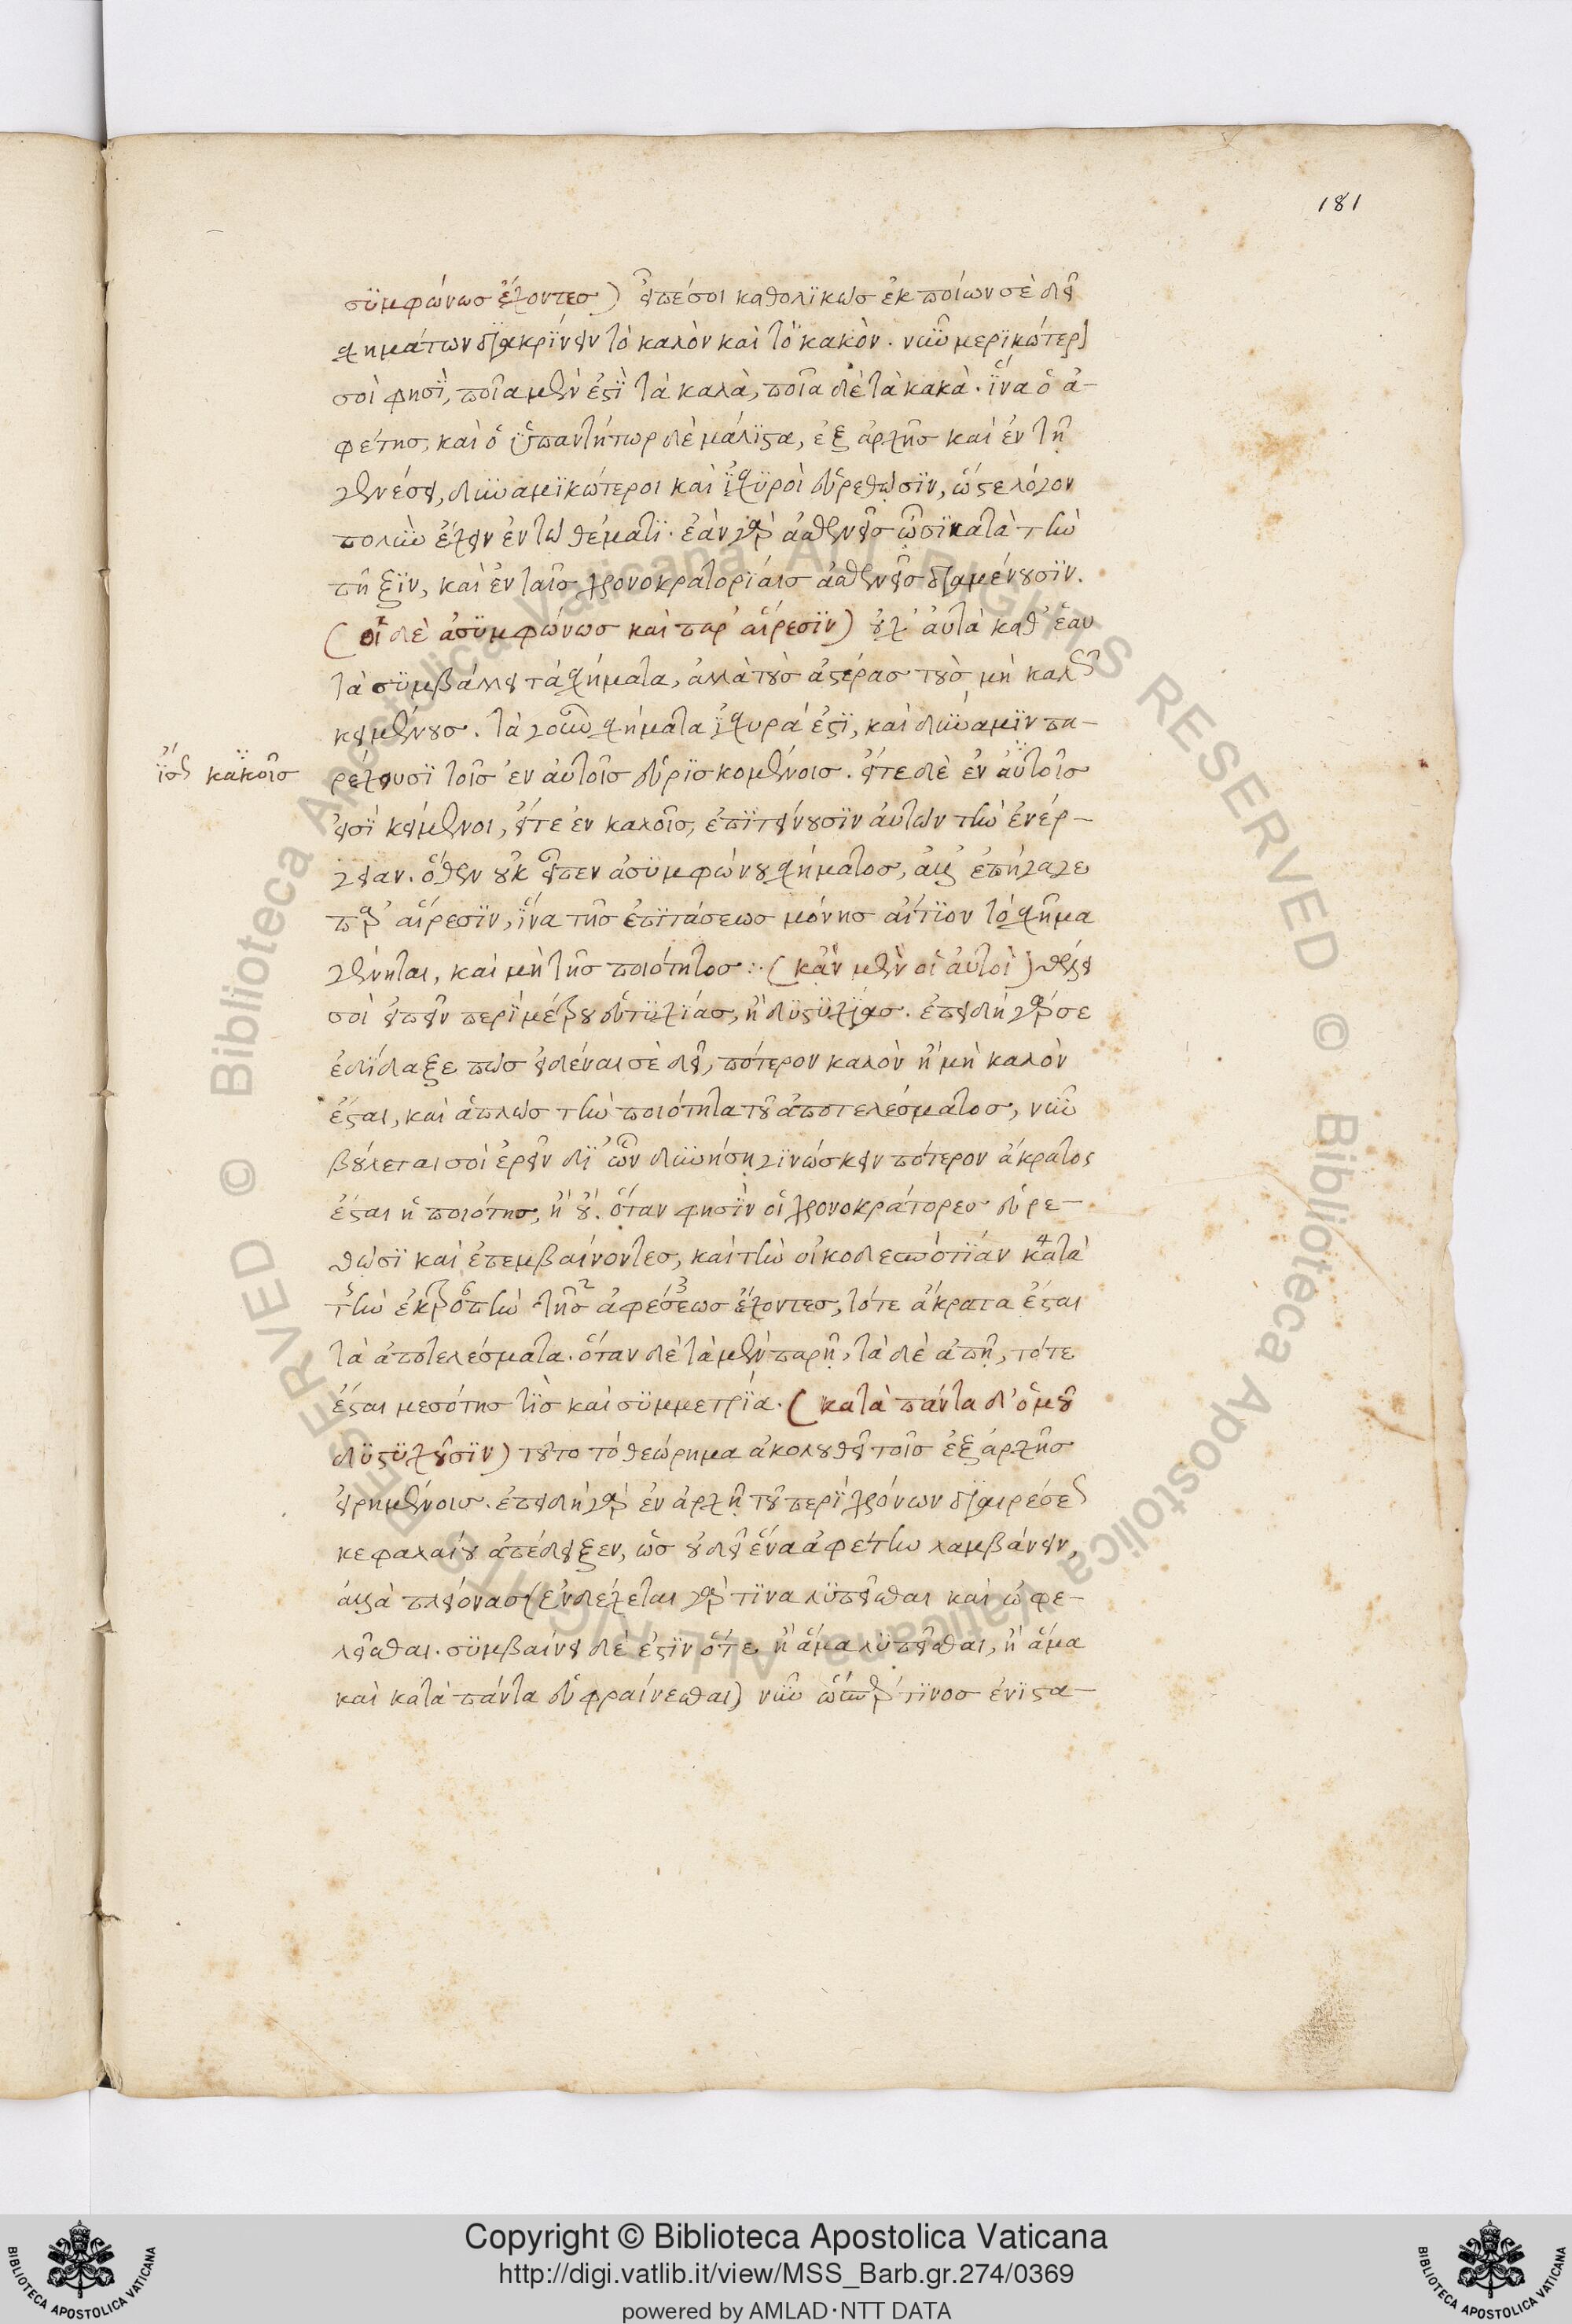 181
συμφώνως ἔχοντες) εἶπέ σοι καθολικῶς ἐκ ποίων σὲ δεῖ
σχημάτων διακρίνειν τὸ καλὸν καὶ τὸ κακὸν. νῦν μερικώτερον
σοὶ φησὶ, ποῖα μὲν ἐστὶ τὰ καλὰ, ποῖα δὲ τὰ κακὰ. ἵνα ὁ ἀ-
φέτης, καὶ ὁ ὑπαντήτωρ δὲ μάλιστα, ἐξ ἀρχῆς καὶ ἐν τῇ
γενέσει, δυναμικώτεροι καὶ ἰσχυροὶ εὑρεθῶσιν, ὥστε λόγον
πολὺν ἔχειν ἐν τῷ θέματι. ἐὰν γὰρ ἀσθενεῖς ὦσι κατὰ τὴν
πῆξιν, καὶ ἐν ταῖς χρονοκρατορίαις ἀσθενεῖς διαμένουσιν.
(οἱ δὲ ἀσυμφώνως καὶ παρ' αἵρεσιν) οὐχ' αὐτὰ καθ' ἑαυ
τὰ συμβάλλει τὰ σχήματα, ἀλλὰ τοὺς ἀστέρας τοὺς μὴ καλῶς
κειμένους. τὰ γοῦν σχήματα ἰσχυρά ἐστι, καὶ δύναμιν πα-
ρεχουσι τοῖς ἐν αὐτοῖς εὑρισκομένοις. εἴτε δὲ ἐν αὐτοῖς
ἴσως κακοῖς
εἰσὶ κείμενοι, εἴτε ἐν καλοῖς, ἐπιτείνουσιν αὐτῶν τὴν ἐνέρ-
γειαν. ὅθεν οὐκ εἶπεν ἀσυμφώνου σχήματος, ἀλλ' ἐπήγαγε
παρ' αἵρεσιν, ἵνα τῆς ἐπιτάσεως μόνης αἴτιον τὸ σχῆμα
γένηται, καὶ μὴ τῆς ποιότητος :· (κἂν μὲν οἱ αὐτοὶ) θέλει
σοὶ εἰπεῖν περὶ μέτρου εὐτυχίας, ἢ δυστυχίας. ἐπειδὴ γάρ σε
ἐδίδαξε πῶς εἰδέναι σὲ δεῖ, πότερον καλὸν ἢ μὴ καλὸν
ἔσται, καὶ ἁπλῶς τὴν ποιότητα τοῦ ἀποτελέσματος, νῦν
βούλεται σοὶ ἐρεῖν δι' ὧν δυνήσῃ γινώσκειν πότερον ἄκρατος
ἔσται ἡ ποιότης, ἢ οὔ. ὅταν φησὶν οἱ χρονοκράτορες εὑρε-
θῶσι καὶ ἐπεμβαίνοντες, καὶ τὴν οἰκοδεσποτίαν κατὰ
τὴν ἐκτροπὴν τῆς ἀφέσεως ἔχοντες, τότε ἄκρατα ἔσται
τὰ ἀποτελέσματα. ὅταν δὲ τὰ μὲν παρῇ, τὰ δὲ ἀπῇ, τότε
ἔσται μεσότης τὶς καὶ συμμετρία. (κατὰ πάντα δ' ὁμοῦ
δυστυχοῦσιν) τοῦτο τὸ θεώρημα ἀκολουθεῖ τοῖς ἐξ ἀρχῆς
εἰρημένοις. ἐπειδὴ γὰρ ἐν ἀρχῇ τοῦ περὶ χρόνων διαιρέσεως
κεφαλαίου ἀπέδειξεν, ὡς οὐ δεῖ ἕνα ἀφέτην λαμβάνειν,
ἀλλὰ πλείονας (ἐνδέχεται γάρ τινα λυπεῖσθαι καὶ ὠφε-
λεῖσθαι. συμβαίνει δὲ ἔστιν ὅτε ἢ ἅμα λυπεῖσθαι, ἢ ἅμα
καὶ κατὰ πάντα εὐφραίνεσθαι) νῦν ὥσπερ τινος ἐνιστα-
Copyright © Biblioteca Apostolica Vaticana
http://digi.vatlib.it/view/MSS_Barb.gr.274/0369
powered by AMLAD·NTT DATA